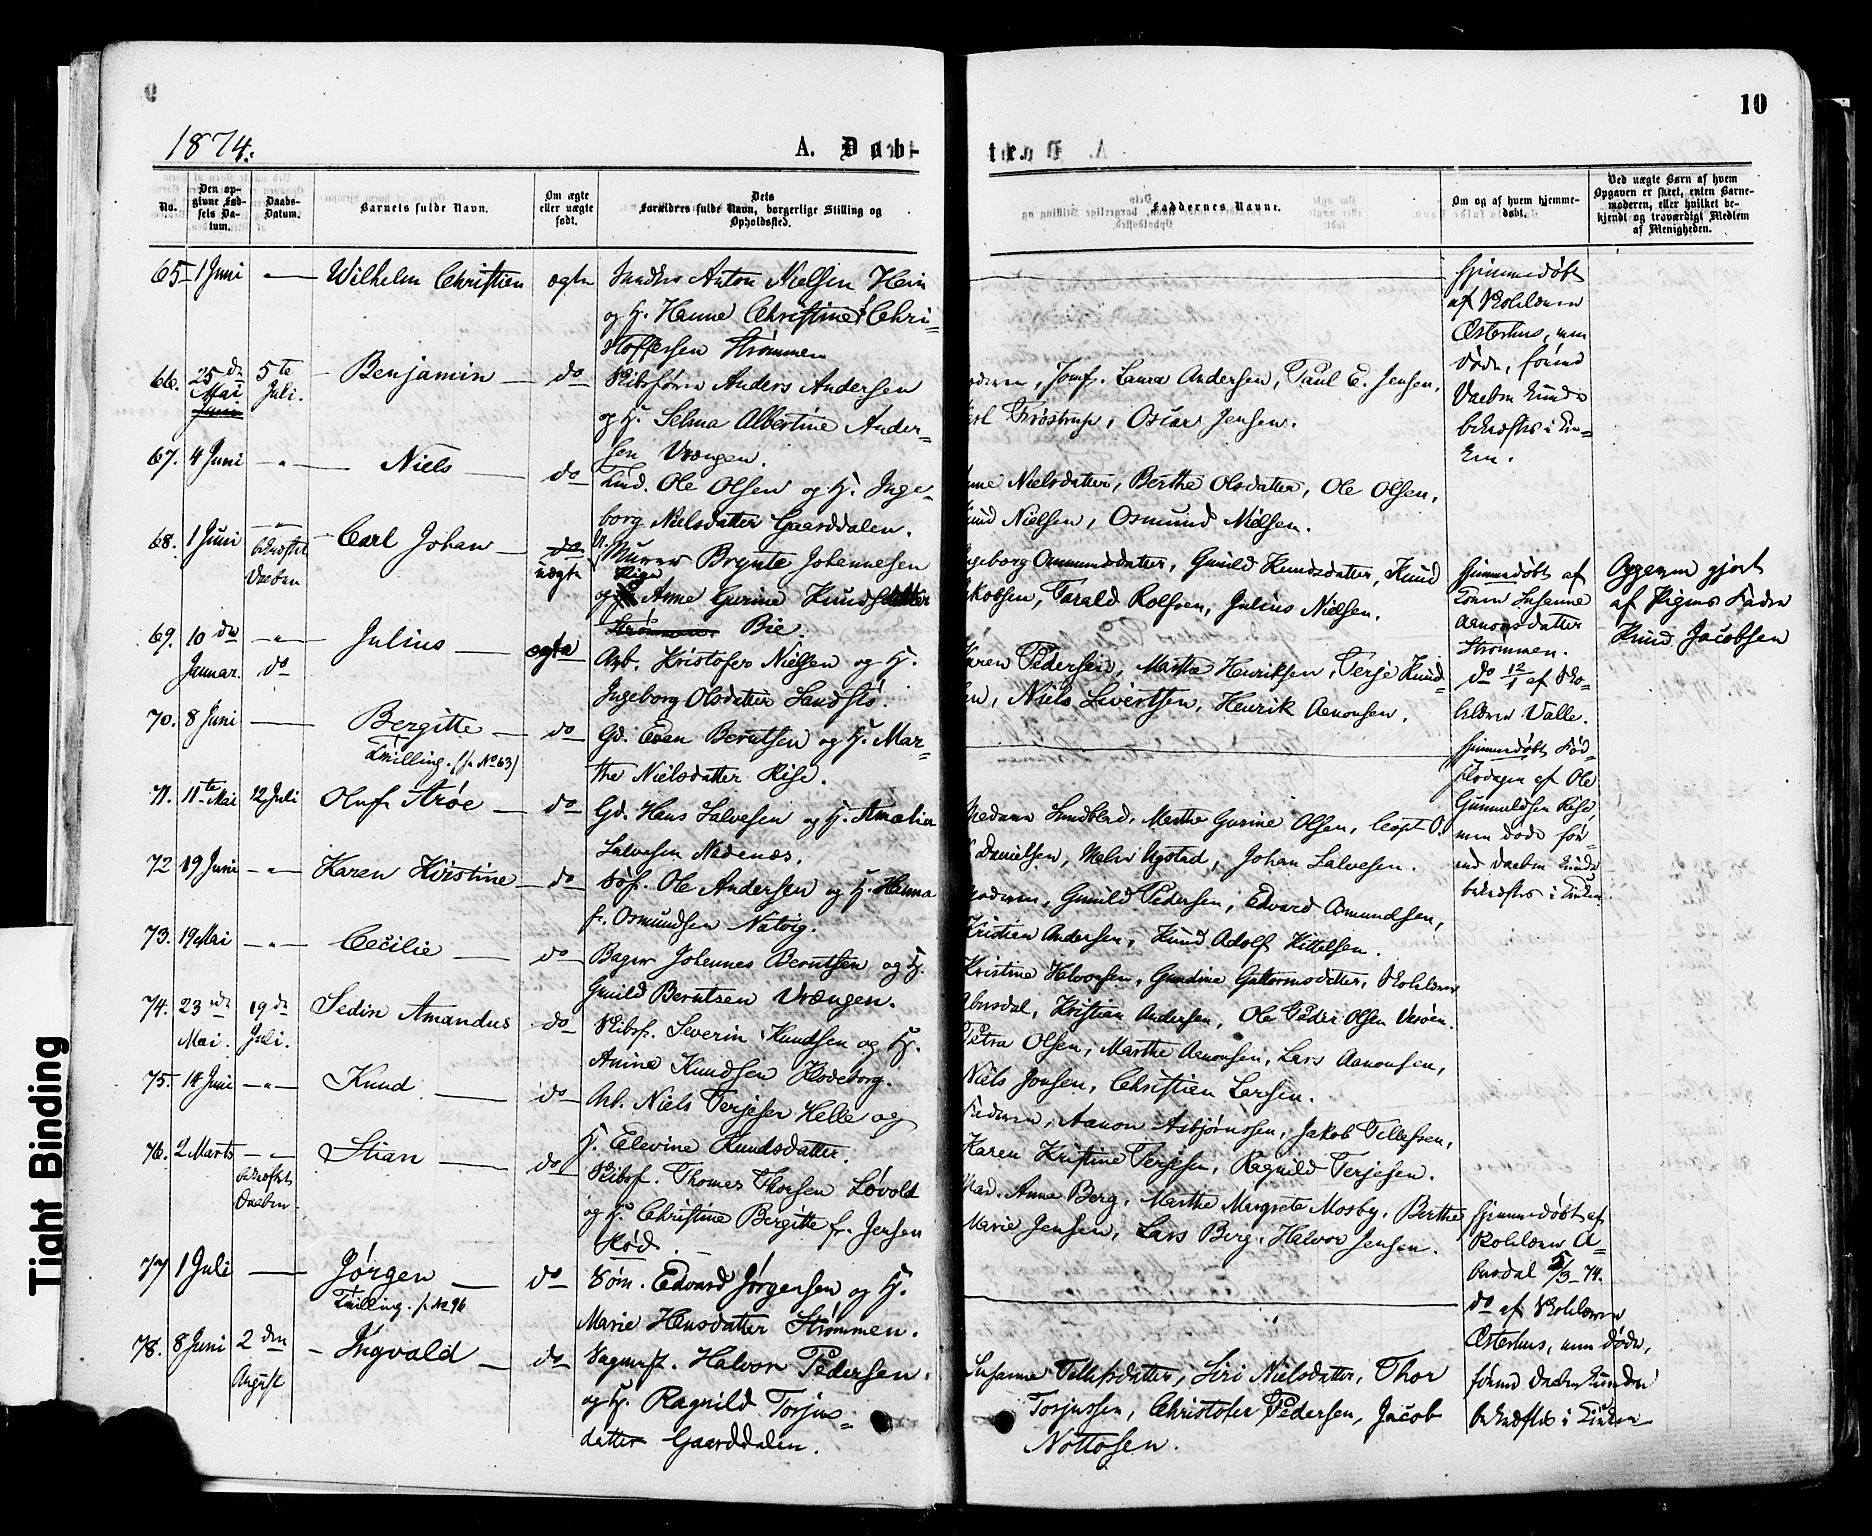 10
1874.
A. Døb-
te.
No.
Den op-
givne Fød-
sels Da-
tum.
Daabs-
Datum.
Barnets fulde Navn.
Om ægte
eller uægte
født.
Dets
Forældres fulde Navn, borgerlige Stilling og
Opholdssted.
Faddernes Navne.
Om og af hvem hjemme-
døbt.
Ved uægte Børn af hvem
Opgaven er skeet, enten Barne-
moderen, eller hvilket be-
kjendt og troværdigt Medlem
af Menigheden.
65 1 Juni — Wilhelm Christian ægte Anton Nielsen Hein
og H. Hanne Christine Chri-
stoffersen Strømmen
Hjemmedøbt
af Skolelærer
Østerhus, men
døde, førend
Daaben kunde
bekræftes i Kir-
ken.
66. 25 de Mai Juni 5te Juli. Benjamin do Skibsfører Anders Andersen
og H. Selma Albertine Ander-
sen Vrængen.
Jomf. Laura Andersen, Paul E. Jensen,
Frøstrup, Oscar Jensen.
67. 4 Juni — " — Niels do Ole Olsen og H. Inge-
borg Nielsdatter Gaarddalen.
Nielsdatter, Berthe Olsdatter, Ole Olsen,
Nielsen, Osmund Nielsen.
68. 1 Juni — " — bekræftet Daaben Carl Johan do uægte Murer Brynte Johannesen
og Pige Anne Gurine Knudsdatter
Strømmen. Bie.
Ingeborg Osmundsdatter, Gunild Knudsdatter, Knud
Jakobsen, Tarald Rolfsen, Julius Nielsen.
Hjemmedøbt af
Konen Susanne
Aanonsdatter
Strømmen.
Opgaven gjort
af Pigens Fader
Knud Jacobsen
69. 10 de Januar. — " — do Julius ægte Arb. Kristofer Nielsen og H.
Ingeborg Olsdatter Sandstø.
Karen Pedersen, Marthe Henriksen, Terje Knud-
sen, Niels Sivertsen, Henrik Aanonsen.
do 12/1 af Sko-
lelærer Valle.
70. 8 Juni — Bergitte do Gd. Even Berntsen og H. Mar-
Tvilling. (s. No 63)
the Nielsdatter Rise.
Hjemmedøbt Fød-
selsdagen af Ole
Gunnuldsen Rise,
men døde før-
end Daaben kunde
bekræftes i Kirken.
71. 11te Mai 12 Juli Oluf Arøe do Gd. Hans Salvesen og H. Amalia
Salvesen Nedenæs.
Madame Lundblad, Marthe Gurine Olsen, Capt O.
Danielsen, Ugstad, Johan Salvesen.
72 19 Juni — " — Karen Kirstine do Søf. Ole Andersen og H. Hanna
f. Osmundsen Natvig.
Moderen, Gunild Pedersen, Edvard Amundsen,
Kristian Andersen, Knud Adolf Kittelsen.
73. 19 Mai — " — Cecilie do Bager Johannes Berntsen og H.
Gunild Berntsen Vrængen.
Kristine Halvorsen, Gundine Guttormsdatter, Skolelærer
Abusdal, Kristian Andersen, Ole Peder Olsen
74. 23 de Mai. 19 de Juli. Sedin Amandus do Skibsf. Severin Knudsen og H.
Anine Knudsen Kodeborg.
Petra Olsen, Marthe Aanonsen, Lars Aanonsen,
Niels Jonsen, Christian Larsen.
75. 14 Juni — " — Knud do Arb. Niels Terjesen Helle og
H. Elevine Knudsdatter.
Faderen, Aanon Asbjørnssen, Jakob Tellefsen,
Karen Kristine Terjesen, Ragnild Terjesen.
76. 2 Marts — " — bekræftet Daaben Stian do Skibsf. Thomas Thorsen Løvold
og H. Christine Bergitte f. Jensen
Kød.
Mad. Anna Berg, Marthe Margrete Mosby, Berthe
Marie Jensen, Lars Berg, Halvor Jensen.
Hjemmedøbt af
Skolelærer A-
busdal 5/3-74.
77 1 Juli — Jørgen do Søm. Edvard Jørgensen og H.
Tvilling. s. No 96
Marie Hansdatter Strømmen.
do af Skolelærer
Østerhus, men døde,
førend Daaben kunde
bekræftes i Kirken
78. 8 Juni 2 den August Ingvald do Halvor Pedersen
og H. Ragnild Torjus-
datter Gaarddalen.
Susanne Tellefsdatter, Siri Nielsdatter, Thor
Torjussen, Christofer Pedersen, Jacob
Nottosen.
Tight Binding